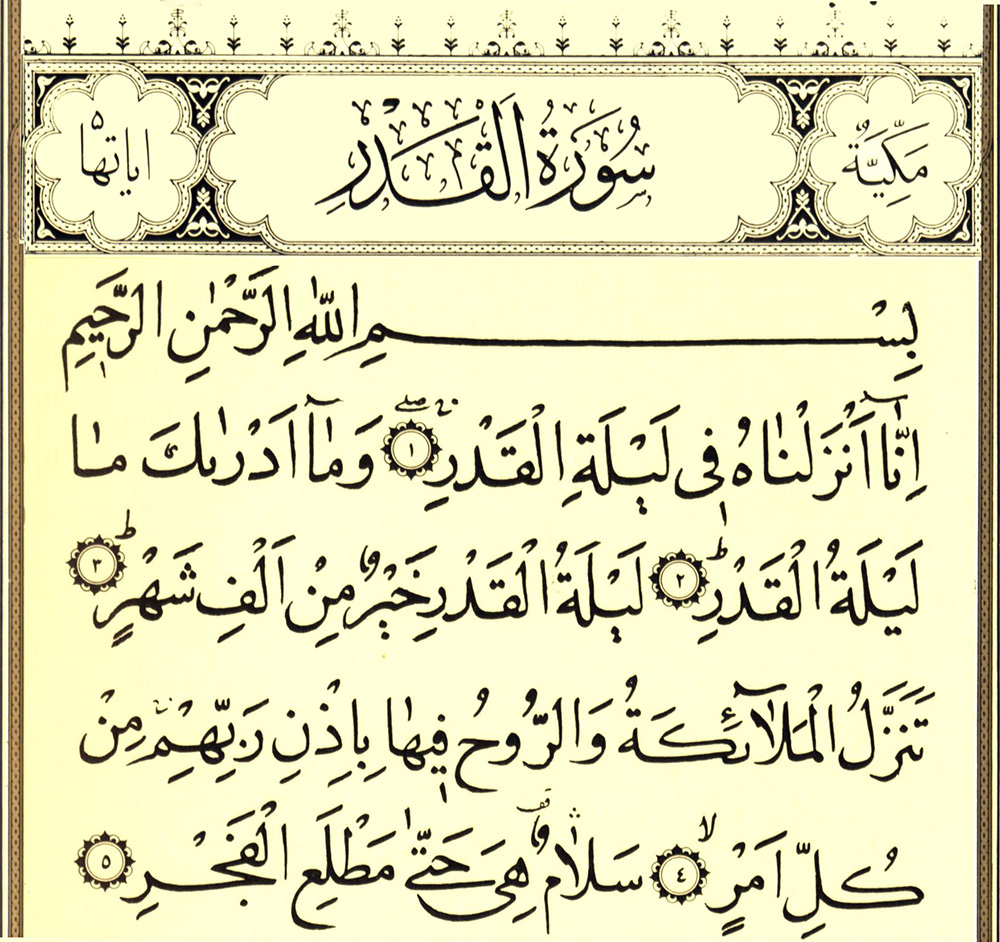 مَكِّيَّةٌ سُورَةُ الْقَدْرِ اٰيَاتُهَا ٥
بِسْمِ اللّٰهِ الرَّحْمٰنِ الرَّحِيمِ
اِنَّٓا اَنْزَلْنَاهُ فِى لَيْلَةِ الْقَدْرِ ١ صلى وَمَٓا اَدْرٰيكَ مَا
لَيْلَةُ الْقَدْرِ ط ٢ لَيْلَةُ الْقَدْرِ خَيْرٌ مِنْ اَلْفِ شَهْرٍ ط ٣
تَنَزَّلُ الْمَلَٓائِكَةُ وَالرُّوحُ فِيهَا بِاِذْنِ رَبِّهِمْ مِنْ
كُلِّ اَمْرٍ لا ٤ سَلَامٌ قف هِىَ حَتّٰى مَطْلَعِ الْفَجْرِ ٥